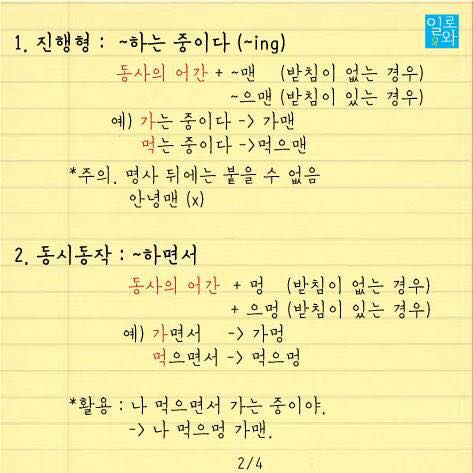 일로와
1. 진행형 : ~하는 중이다 (~ing)
동사의 어간 + ~맨 (받침이 없는 경우)
~으맨 (받침이 있는 경우)
예) 가는 중이다 -> 가맨
먹는 중이다 ->먹으맨
*주의. 명사 뒤에는 붙을 수 없음
안녕맨 (x)
2. 동시동작 : ~하면서
동사의 어간 + 멍 (받침이 없는 경우)
+ 으멍 (받침이 있는 경우)
예) 가면서 -> 가멍
먹으면서 -> 먹으멍
*활용 : 나 먹으면서 가는 중이야.
-> 나 먹으멍 가맨.
2/4